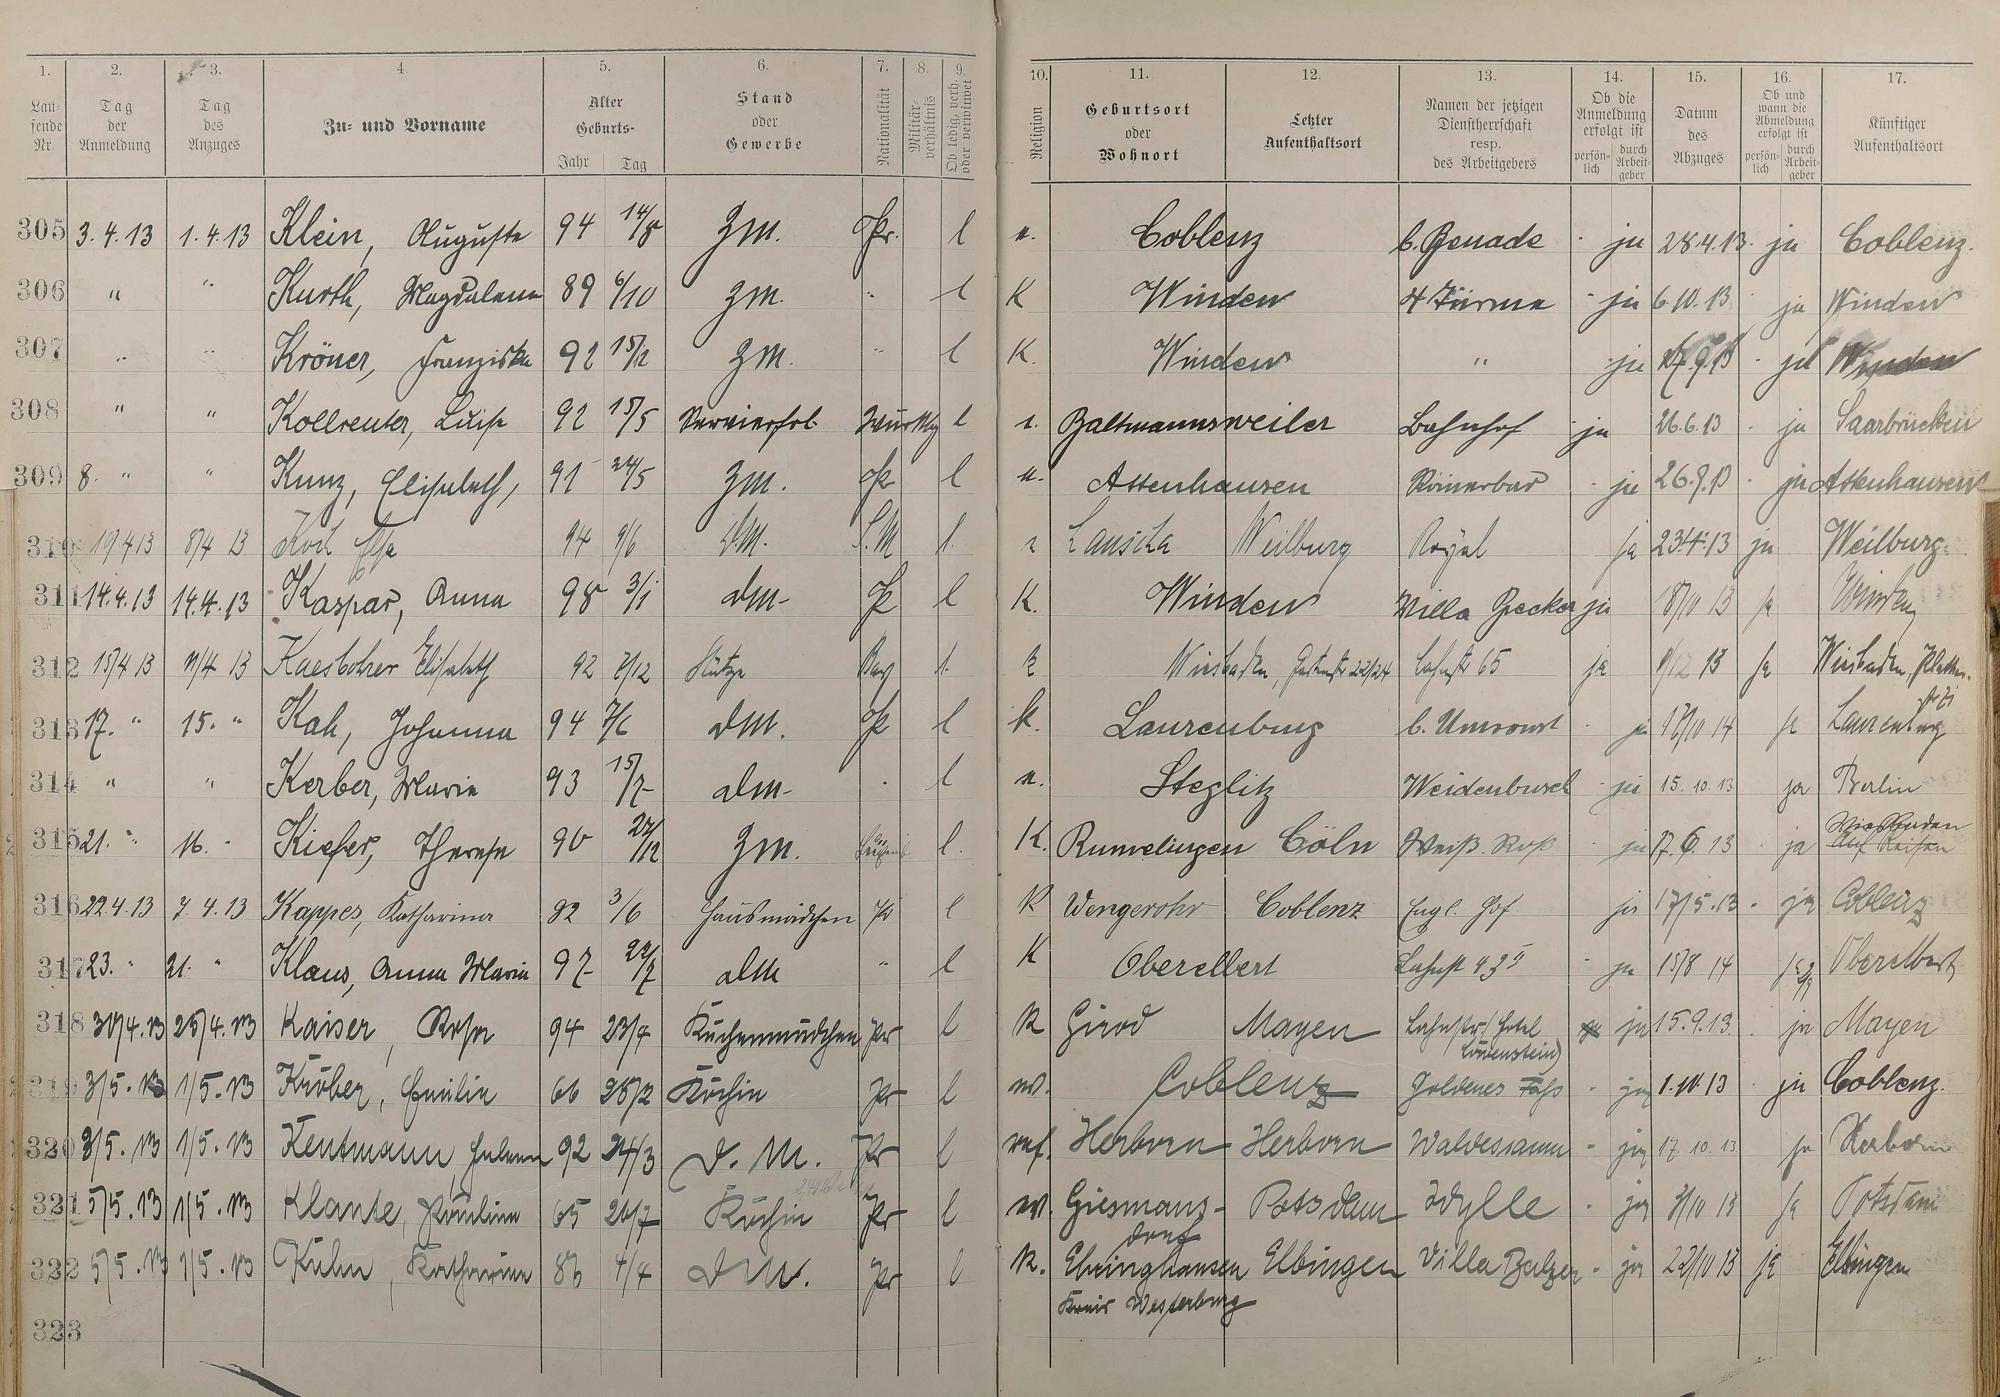 1. 2. 3. 4. 5. 6. 7. 8. 9. 10. 11. 12. 13. 14. 15. 16. 17.
Lau-
fende
Nr.
Tag
der
Anmeldung
Tag
des
Anzuges
Zu- und Vorname
Alter
Geburts-
Jahr Tag
Stand
oder
Gewerbe
Nationalität
Militär-
verhältnis
Ob ledig, verh.
oder verwitwet
Religion
Geburtsort
oder
Wohnort
Letzter
Aufenthaltsort
Namen der jetzigen
Dienstherrschaft
resp.
des Arbeitgebers
Ob die
Anmeldung
erfolgt ist
persön-
lich
durch
Arbeit-
geber
Datum
des
Abzuges
Ob und
wann die
Abmeldung
erfolgt ist
persön-
lich
durch
Arbeit-
geber
Künftiger
Aufenthaltsort
305 3.4.13 1.4.13 Klein, Auguste 94 14/8 Zm. Pr. l e. Coblenz b. Benade - ja 28.4.13. ja Coblenz.
306 " " Kurth, Magdalena 89 6/10 Zm. " l K Winden 4 Türme - ja 6.10.13 ja Winden
307 " " Kröner, Franziska 92 15/12 Zm. " l K. Winden " - ja ja Winden
308 " " Kollreuter, Luise 92 15/5 l Baltmannsweiler Bahnhof ja 26.6.13 - ja Saarbrücken
309 8. " " Kunz, Elisabeth, 91 24/5 Zm. Pr l e. Attenhausen Römerbad - ja 26.9.13 - ja Attenhausen
310 8/4 13 Koch Elsa 94 9/6 DM. S.M l. Lauscha Weilburg Royal ja 23.4.13 ja Weilburg.
311 14.4.13 14.4.13 Kaspar, Anna 98 3/1 dm- Pr l K. Winden Villa Becker ja 18/11 13 ja Winden
312 15/4 13 11/4 13 Kaesbohrer Elisabeth 92 7/12 Stütze Bay l. Wiesbaden, 22/24 Lahnstr 65 ja 13 ja Wiesbaden,
313 17. " 15. " Kah, Johanna 94 7/6 dm. Pr l k. Laurenburg b. Umsonst - ja 14 ja Laurenburg
314 " " Kerber, Maria 93 15/7 dm- " l e. Steglitz Weidenbusch - ja 15.10.13 ja Berlin
315 21. " 16. " Kiefer, Therese 90 27/12 Zm. l. K. Rumelingen Cöln Weiß. Roß - ja 17.6.13 - ja Wiesbaden
Auf Reisen
316 22.4.13 7.4.13 Kappes, Katharina 92 3/6 Hausmädchen Pr l K Wengerohr Coblenz Engl. Hof ja 17/5.13 - ja Coblenz
317 23. " 21. " Klaus, Anna Maria 97 22/7 dm " l K Oberelbert Lahnstr - ja 15/8 14 ja Oberelbert
318 30/4.13 25/4.13 Kaiser, Rosa 94 23/4 Küchenmädchen Pr l K Girod Mayen Lahnstr (Hotel
Löwenstein) ja 15.9.13. ja Mayen
319 3/5.13 1/5.13 Kröber, Emilie 66 26/2 Köchin Pr l ev. Coblenz Goldenes Faß - ja 1.10.13 - ja Coblenz.
320 3/5.13 1/5.13 Kentmann, 92 24/3 D. M. Pr l ref. Herborn Herborn Waldesraum - ja 17.10.13 ja Herborn
321 5/5.13 1/5.13 Klante, Pauline 65 26/7 Köchin Pr l ev. Giesmans-
dorf Potsdam Idylle - ja 3/10 13 ja Potsdam
322 5/5.13 1/5.13 Kuhn, Katharina 86 4/4 DM. Pr l K. Ewinghausen
Kreis Westerburg Elbingen Villa Balzer - ja 22/10 13 ja Elbingen
323